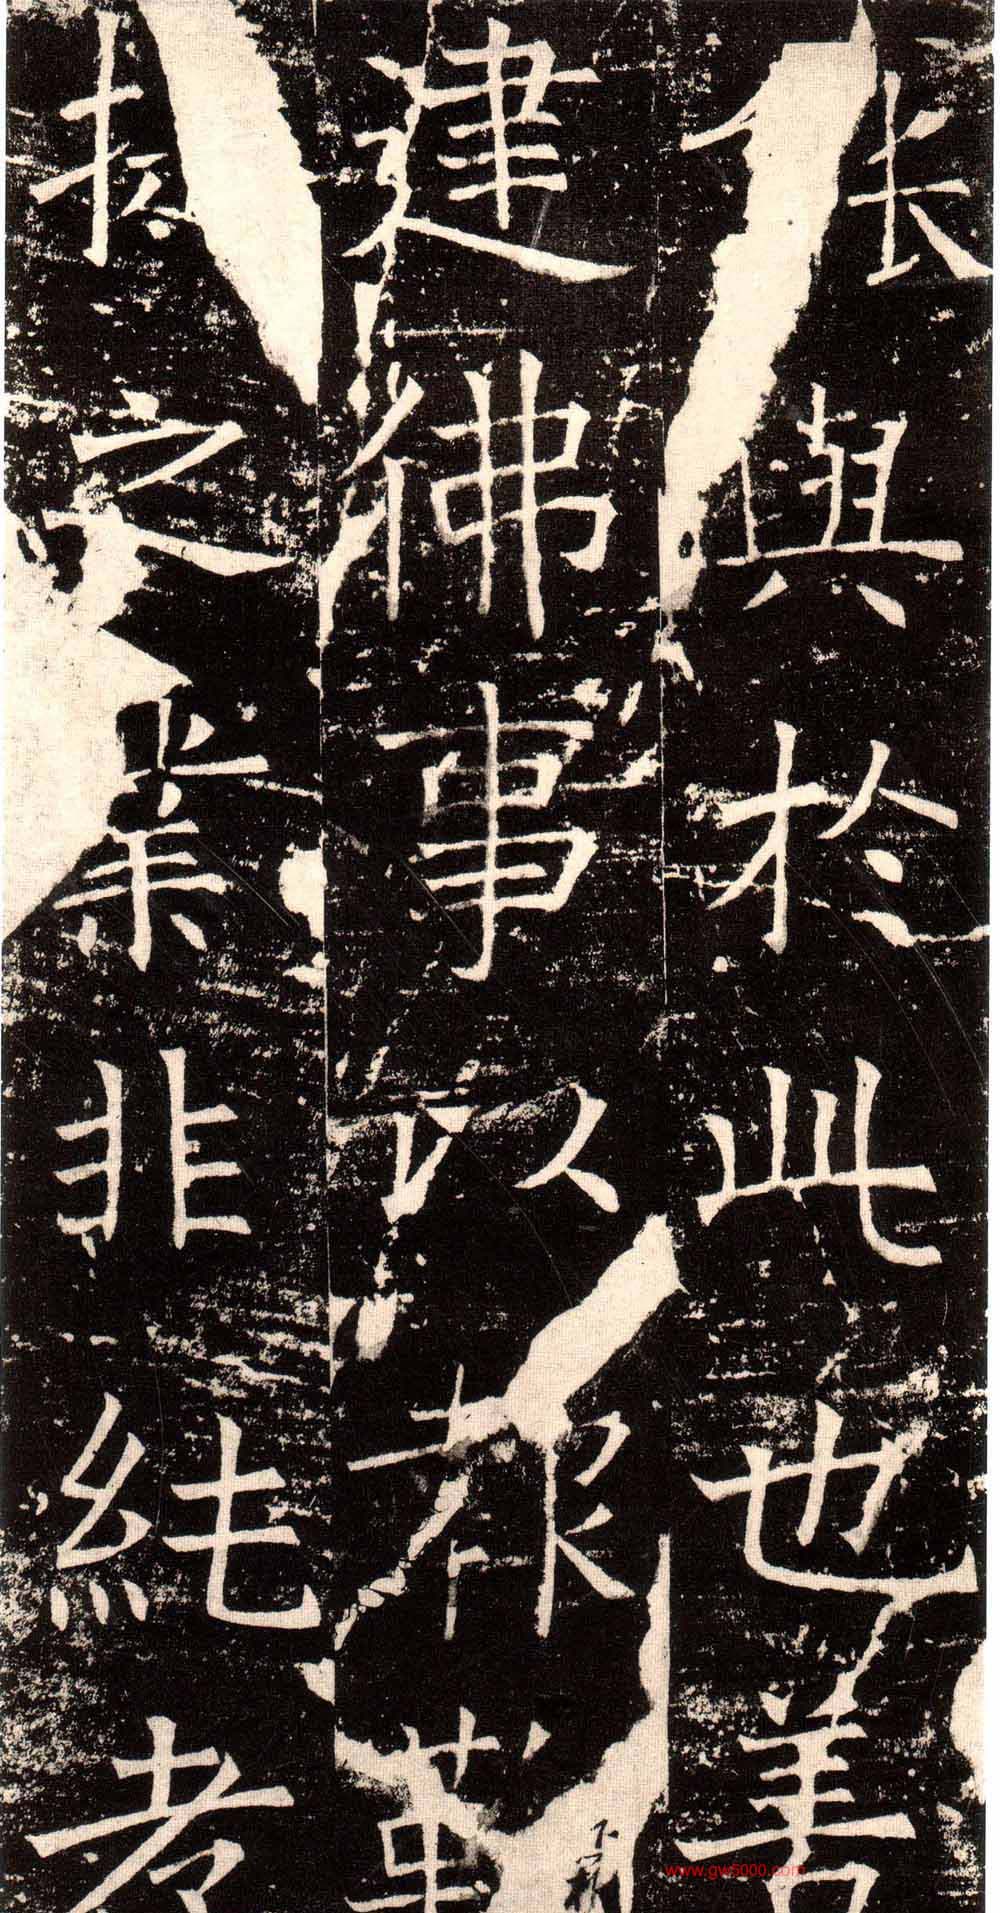 與於此也善
建佛事以報
之業非純孝
www.gw5000.com